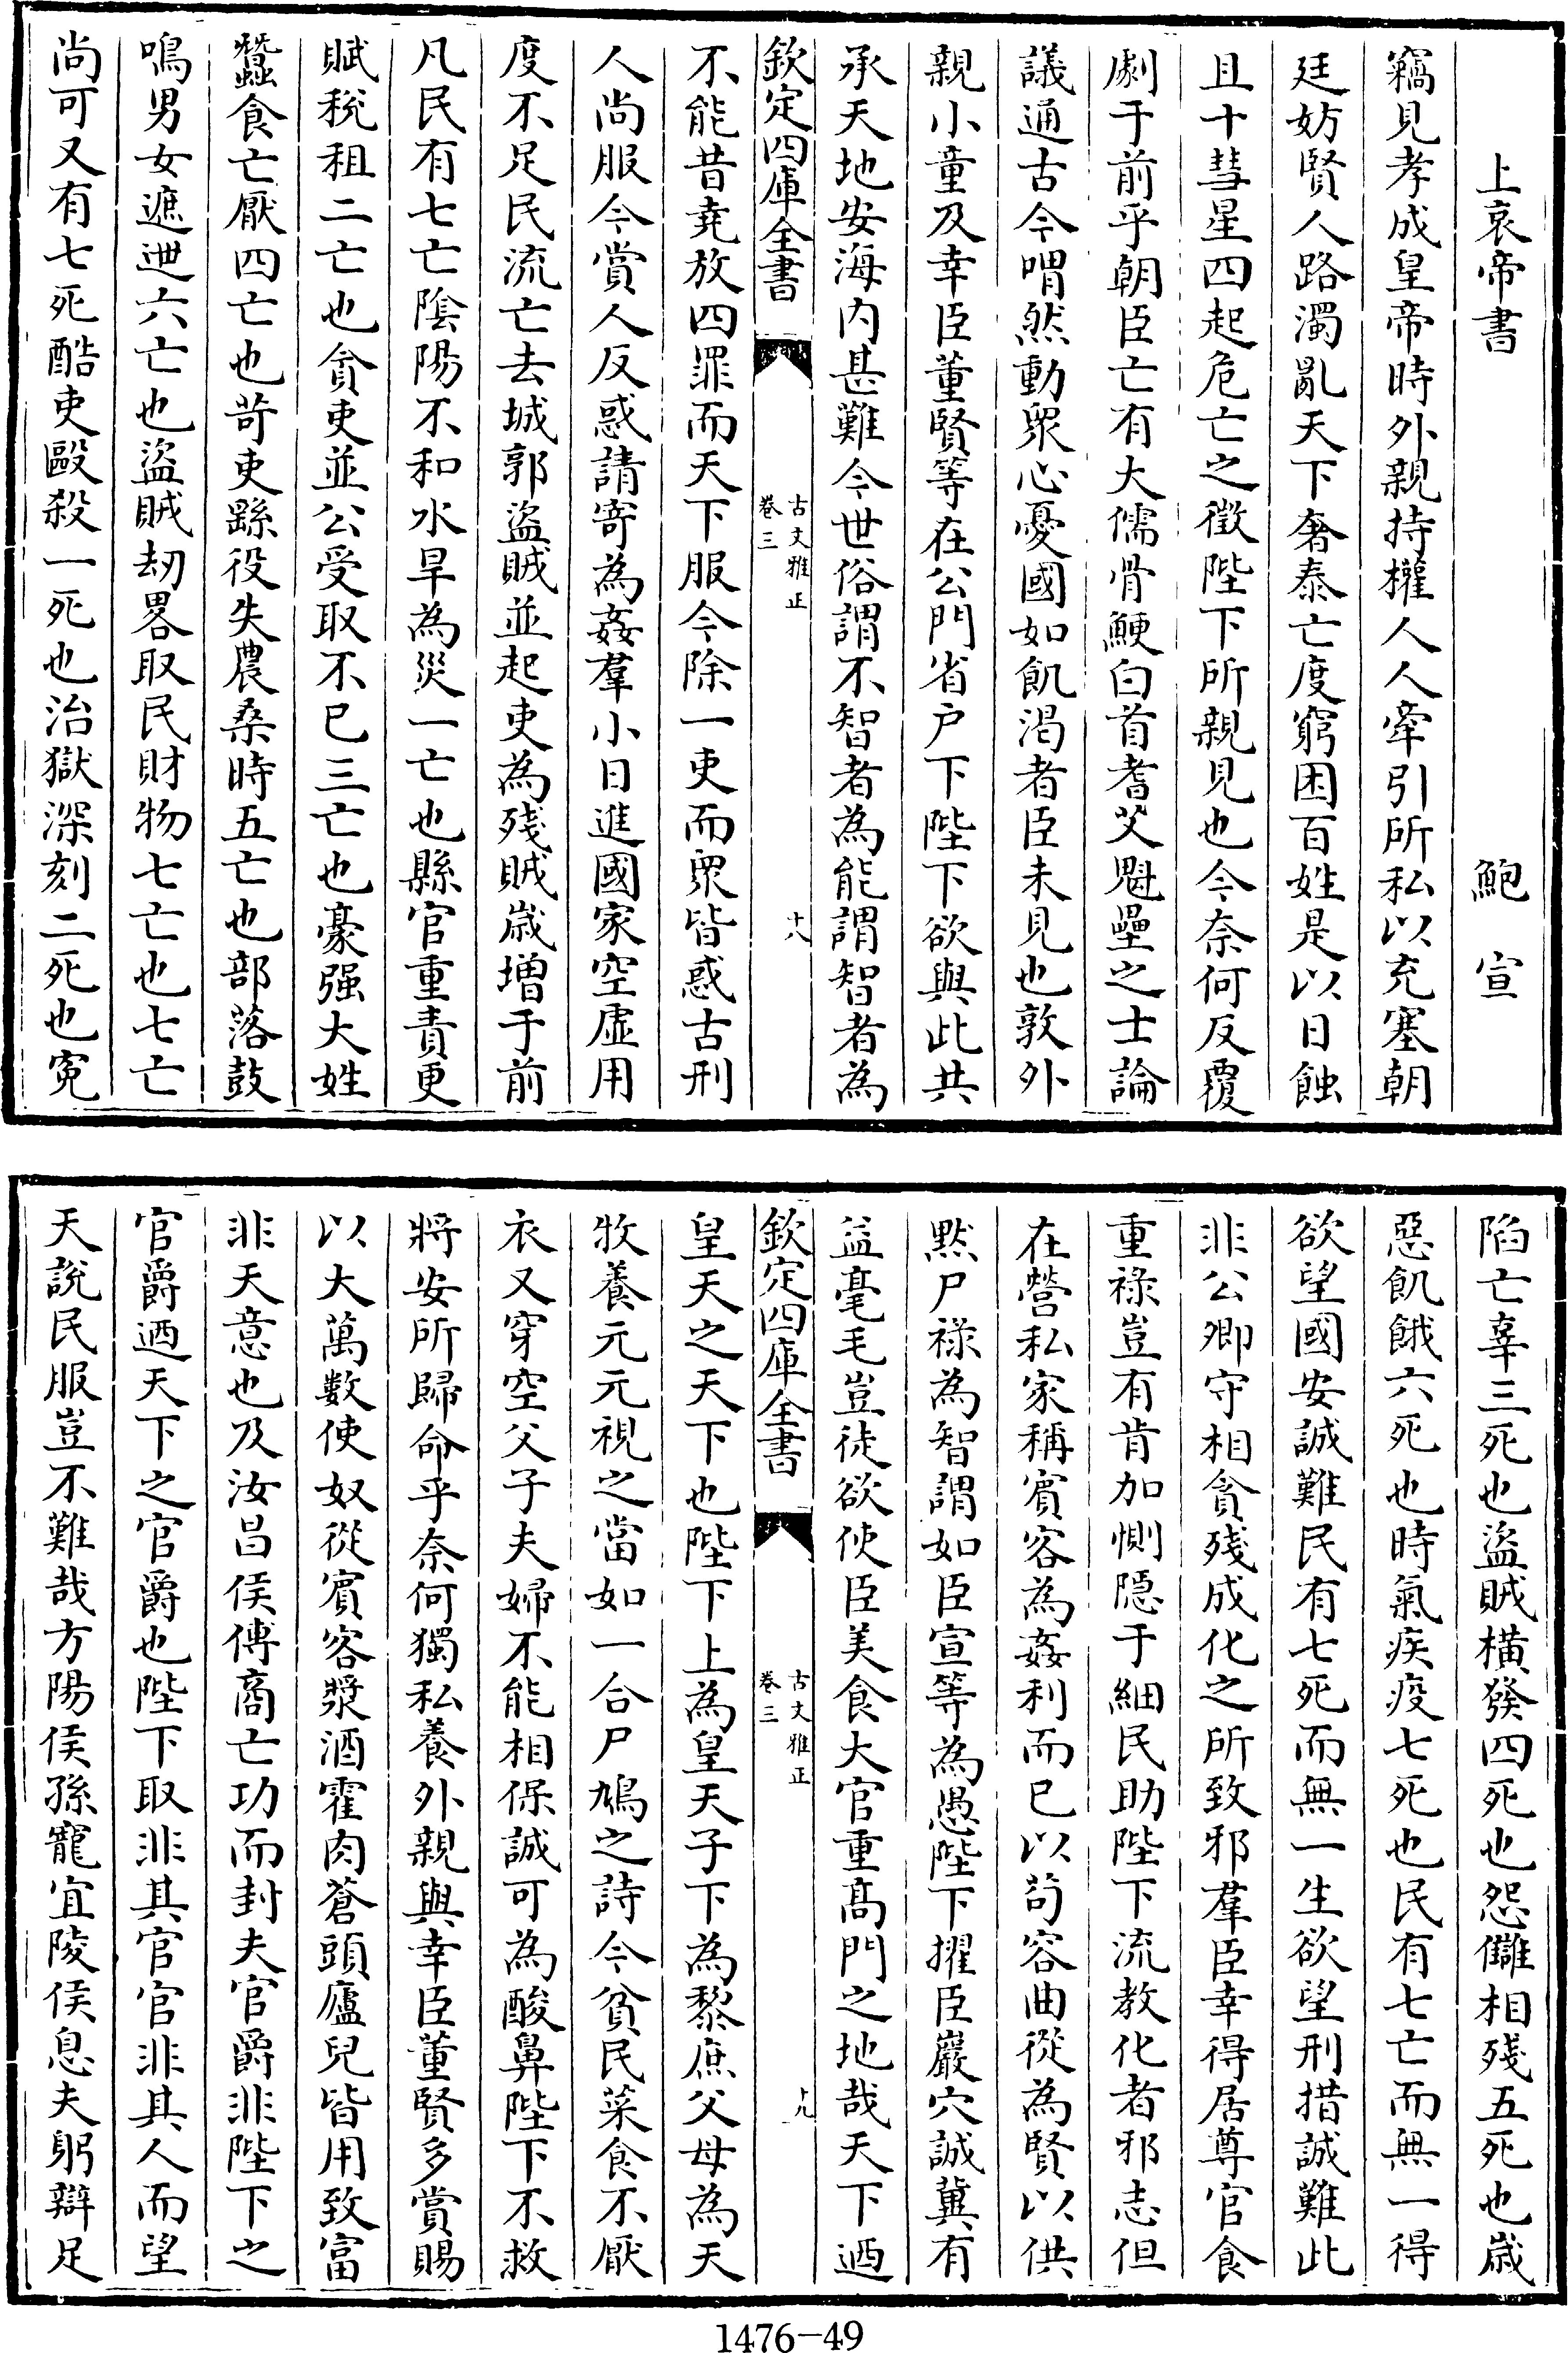 上哀帝書　鮑　宣
竊見孝成皇帝時外親持權人人牽引所私以充塞朝
廷妨賢人路濁亂天下奢泰亡度窮困百姓是以日蝕
且十彗星四起危亡之徵陛下所親見也今奈何反覆
劇于前乎朝臣亡有大儒骨鯁白首耆艾魁壘之士論
議通古今喟然動衆心憂國如飢渴者臣未見也敦外
親小童及幸臣董賢等在公門省户下陛下欲與此共
承天地安海内甚難今世俗謂不智者為能謂智者為
欽定四庫全書
古文雅正
卷三
十八
不能昔堯放四罪而天下服今除一吏而衆皆惑古刑
人尚服今賞人反惑請寄為姦羣小日進國家空虚用
度不足民流亡去城郭盜賊並起吏為残賊歲增于前
凡民有七亡陰陽不和水旱為災一亡也縣官重責更
賦稅租二亡也貪吏並公受取不已三亡也豪强大姓
蠶食亡厭四亡也苛吏繇役失農桑時五亡也部落鼓
鳴男女遮迣六亡也盜賊刼畧取民財物七亡也七亡
尚可又有七死酷吏毆殺一死也治獄深刻二死也寃
陷亡辜三死也盜賊横發四死也怨讎相残五死也歲
惡飢餓六死也時氣疾疫七死也民有七亡而無一得
欲望國安誠難民有七死而無一生欲望刑措誠難此
非公卿守相貪残成化之所致邪羣臣幸得居尊官食
重祿豈有肯加惻隱于細民助陛下流教化者邪志但
在營私家稱賓客為姦利而已以苟容曲從為賢以供
黙尸禄為智謂如臣宣等為愚陛下擢臣巖穴誠冀有
益毫毛豈徒欲使臣美食大官重髙門之地哉天下迺
欽定四庫全書
古文雅正
卷三
十九
皇天之天下也陛下上為皇天子下為黎庶父母為天
牧養元元視之當如一合尸鳩之詩今貧民菜食不厭
衣又穿空父子夫婦不能相保誠可為酸鼻陛下不救
將安所歸命乎奈何獨私養外親與幸臣董賢多賞賜
以大萬數使奴從賓客漿酒霍肉蒼頭廬兒皆用致富
非天意也及汝昌侯傅商亡功而封夫官爵非陛下之
官爵迺天下之官爵也陛下取非其官官非其人而望
天說民服豈不難哉方陽侯孫寵宜陵侯息夫躬辯足
1476-49